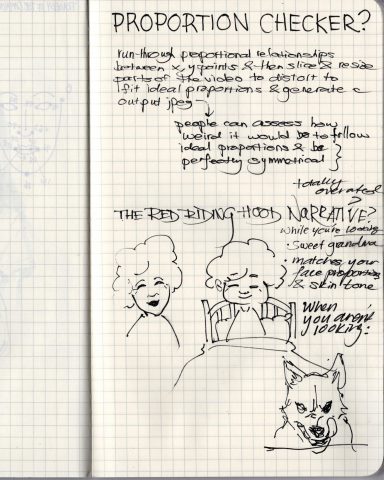 PROPORTION CHECKER?
run-through proportional relationships
between x, y points & then slice & resize
parts of the video to distort to
fit ideal proportions & generate a
output jpeg
people can assess how
weird it would be to follow
ideal proportions & be
perfectly symmetrical
totally
overrated
THE RED RIDING HOOD NARRATIVE?
while you're looking
· sweet grandma
· matches your
face proportions
& skin tone
when
you aren't
looking: